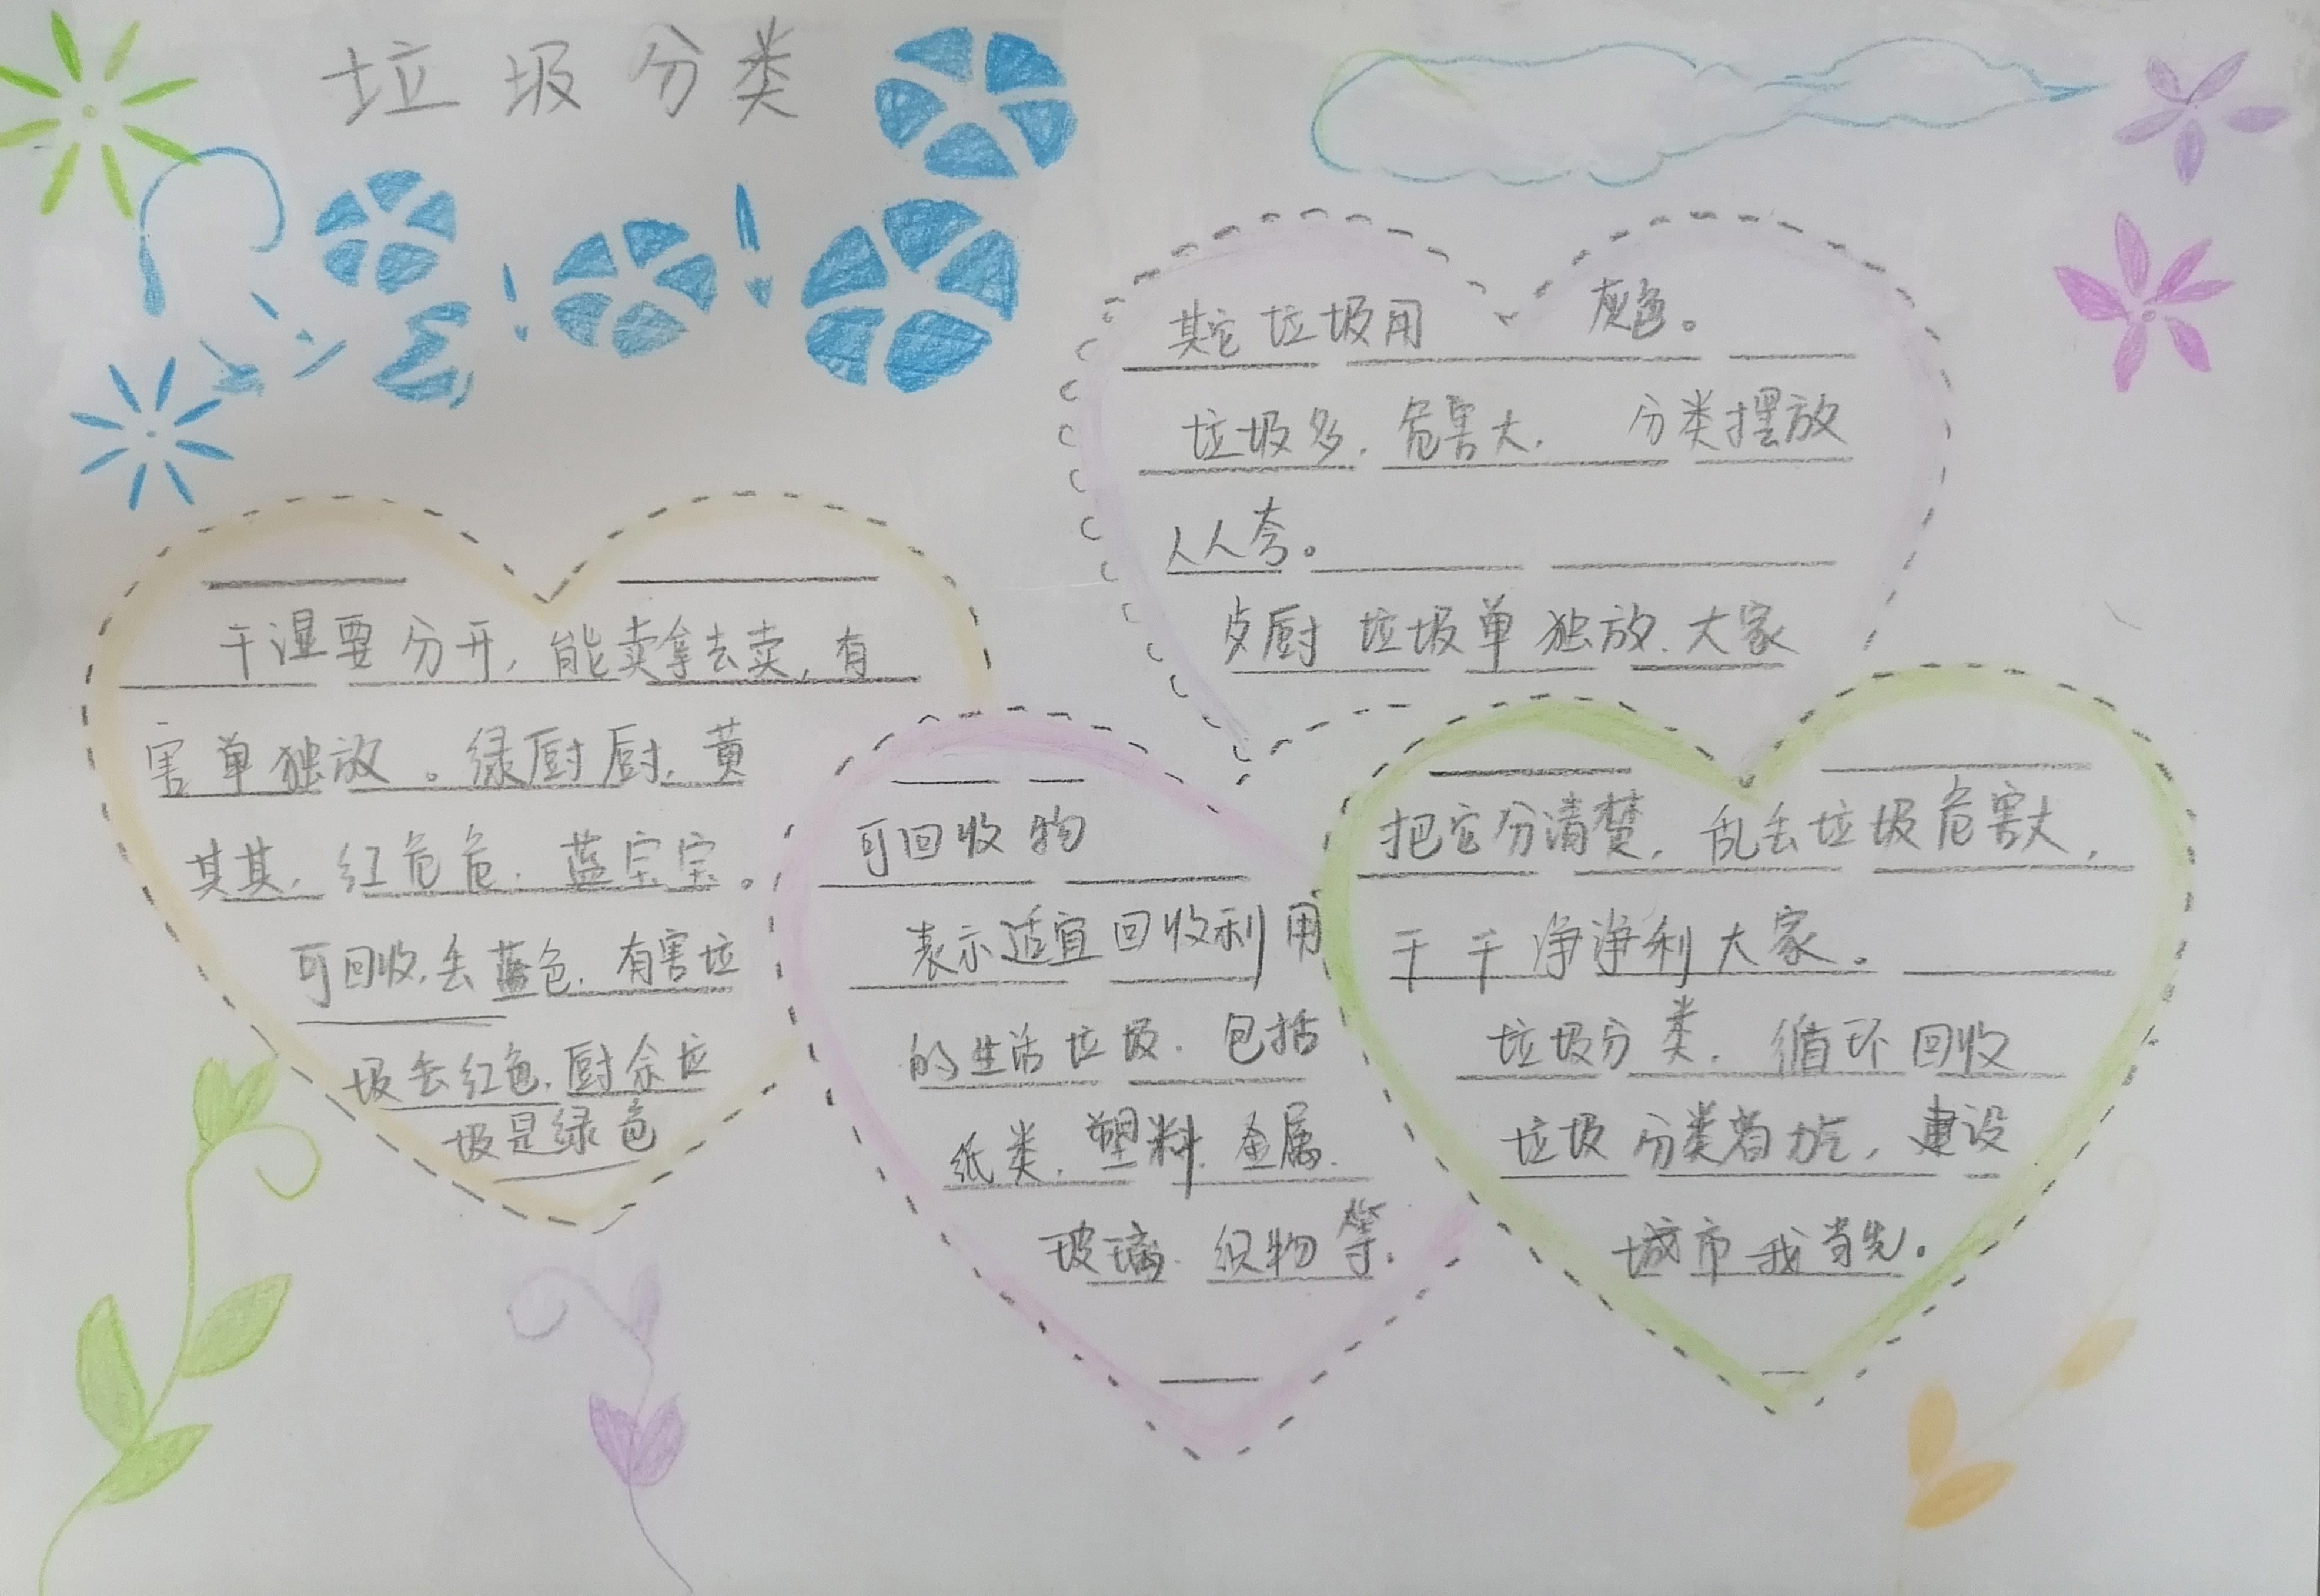 垃圾分类
干湿要分开,能卖拿去卖,有
害单独放。绿厨厨,黄
其其,红危危,蓝宝宝。
可回收,丢蓝色,有害垃
圾丢红色,厨余垃
圾是绿色
其它垃圾用 灰色。
垃圾多,危害大, 分类摆放
人人夸。
厨 垃圾单独放,大家
可回收物
表示适宜回收利用
的生活垃圾,包括
纸类,塑料,金属,
玻璃,织物等.
把它分清楚,乱丢垃圾危害大,
干干净净利大家。
垃圾分类,循环回收
垃圾分类着力,建设
城市我当先。